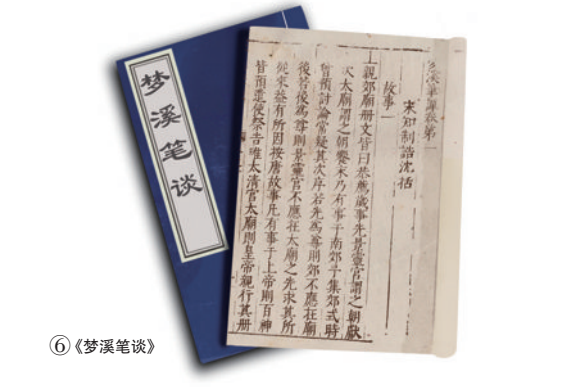 梦溪笔谈
故事一
宋知制誥沈括
上親郊廟册文皆曰恭薦歲事先景靈宮謂之朝獻
次太廟謂之朝饗末乃有事于南郊予集郊式時
曾預討論常疑其次序若先爲尊則郊不應在廟
後若後爲尊則景靈宮不應在太廟之先求其所
從來蓋有所因按唐故事凡有事于上帝則百神
皆預遣使祭告唯太清宮太廟則皇帝親行其册
⑥《梦溪笔谈》